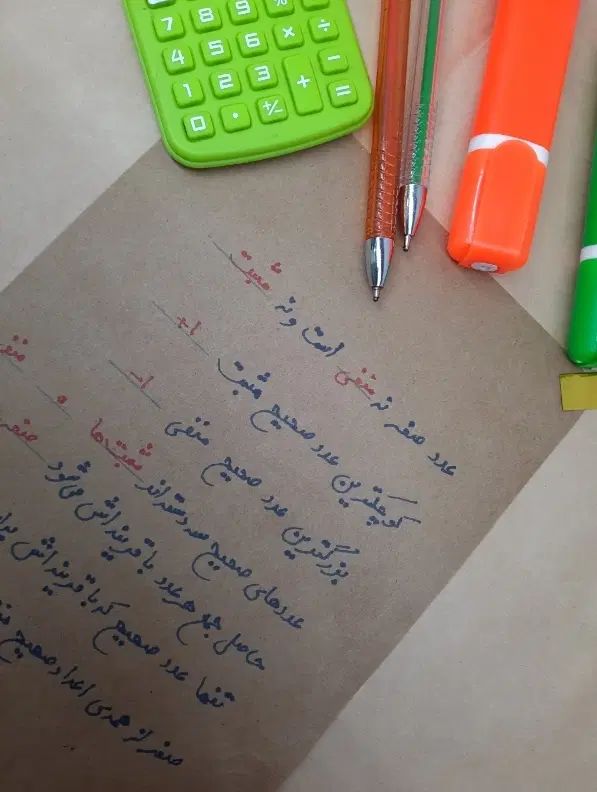 7 8 9 × ÷
4 5 6 × ÷
1 2 3 + −
0 · +/− =
عدد صفر نه منفی است و نه مثبت
کوچکترین عدد صحیح مثبت +۱
بزرگترین عدد صحیح منفی -۱
عددهای صحیح سه دسته‌اند مثبت‌ها ۰ منفی
حاصل جمع هر عدد با قرینه‌اش می‌شود صفر
تنها عدد صحیح که با قرینه‌اش برابر
صفر از همه‌ی اعداد صحیح